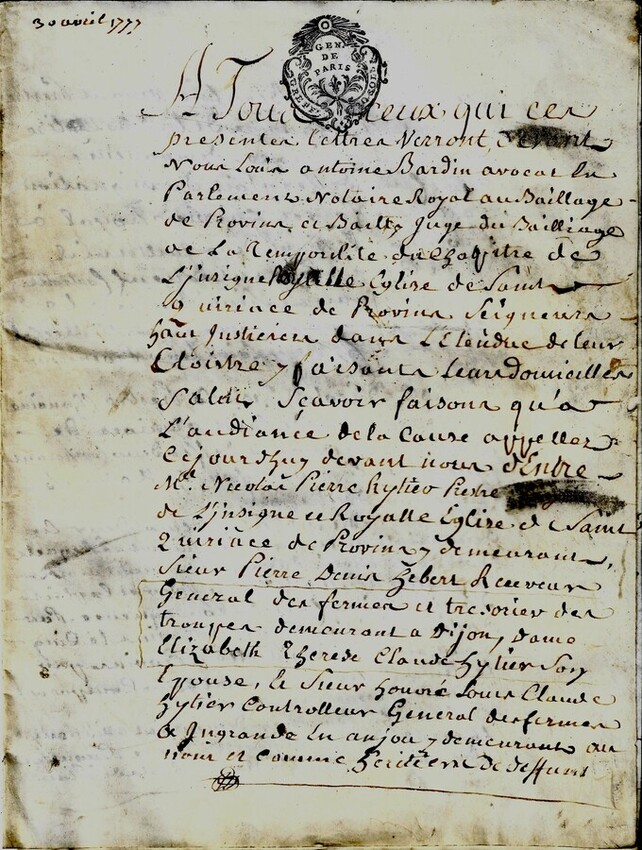 30 avril 1777
GEN.
DE
PARIS
A Tous ceux qui ces
presentes Lettres Verront, devant
Nous Louis antoine Bardin avocat en
Parlement Notaire Royal au Baillage
de Provins et Bailly Juge du Bailliage
de La Temporalité du Chapitre de
L'insigne Royalle Eglise de Saint
Quiriace de Provins Seigneurs
haut Justiciers dans L'Etendue de leur
Cloistre y faisants Leur domicilles
Salut Scavoir faisons qu'a
L'audiance de la Cause appellez
Cejourdhuy devant nous d'Entre
Me. Nicolas Pierre hylier Pretre
de L'insigne et Royalle Eglise de Saint
Quiriace de Provins y demeurant,
Sieur Pierre Denis hebert Receveur
General des fermes et tresorier des
troupes demeurant a Dijon, dame
Elizabeth Therese Claude hylier Son
Epouse, le Sieur honoré Louis Claude
hylier Controlleur General des fermes
a Ingrande En anjou y demeurant au
nom et comme heritiers de deffunt